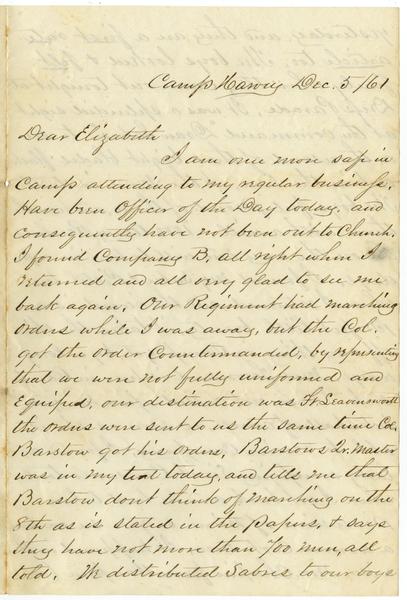 Camp Harvey Dec. 5/61
Dear Elizabeth
I am one more safe in
Camp attending to my regular business.
Have been Officer of the Day today, and
consequently have not been out to Church.
I found Company B. all right when I
returned and all very glad to see me
back again. Our Regiment had marching
orders while I was away, but the Col.
got the order Countermanded, by representing
that we wer not fully uniformed and
Equiped, our destination was Ft Leavenworth
the orders wer sent to us the same time Col.
Barstow got his orders, Barstows Qr. Master
was in my tent today, and tells me that
Barstow dont think of marching on the
8th as is stated in the Papers, & says
they have not more than 700 men, all
told. We distributed Sabres to our boys